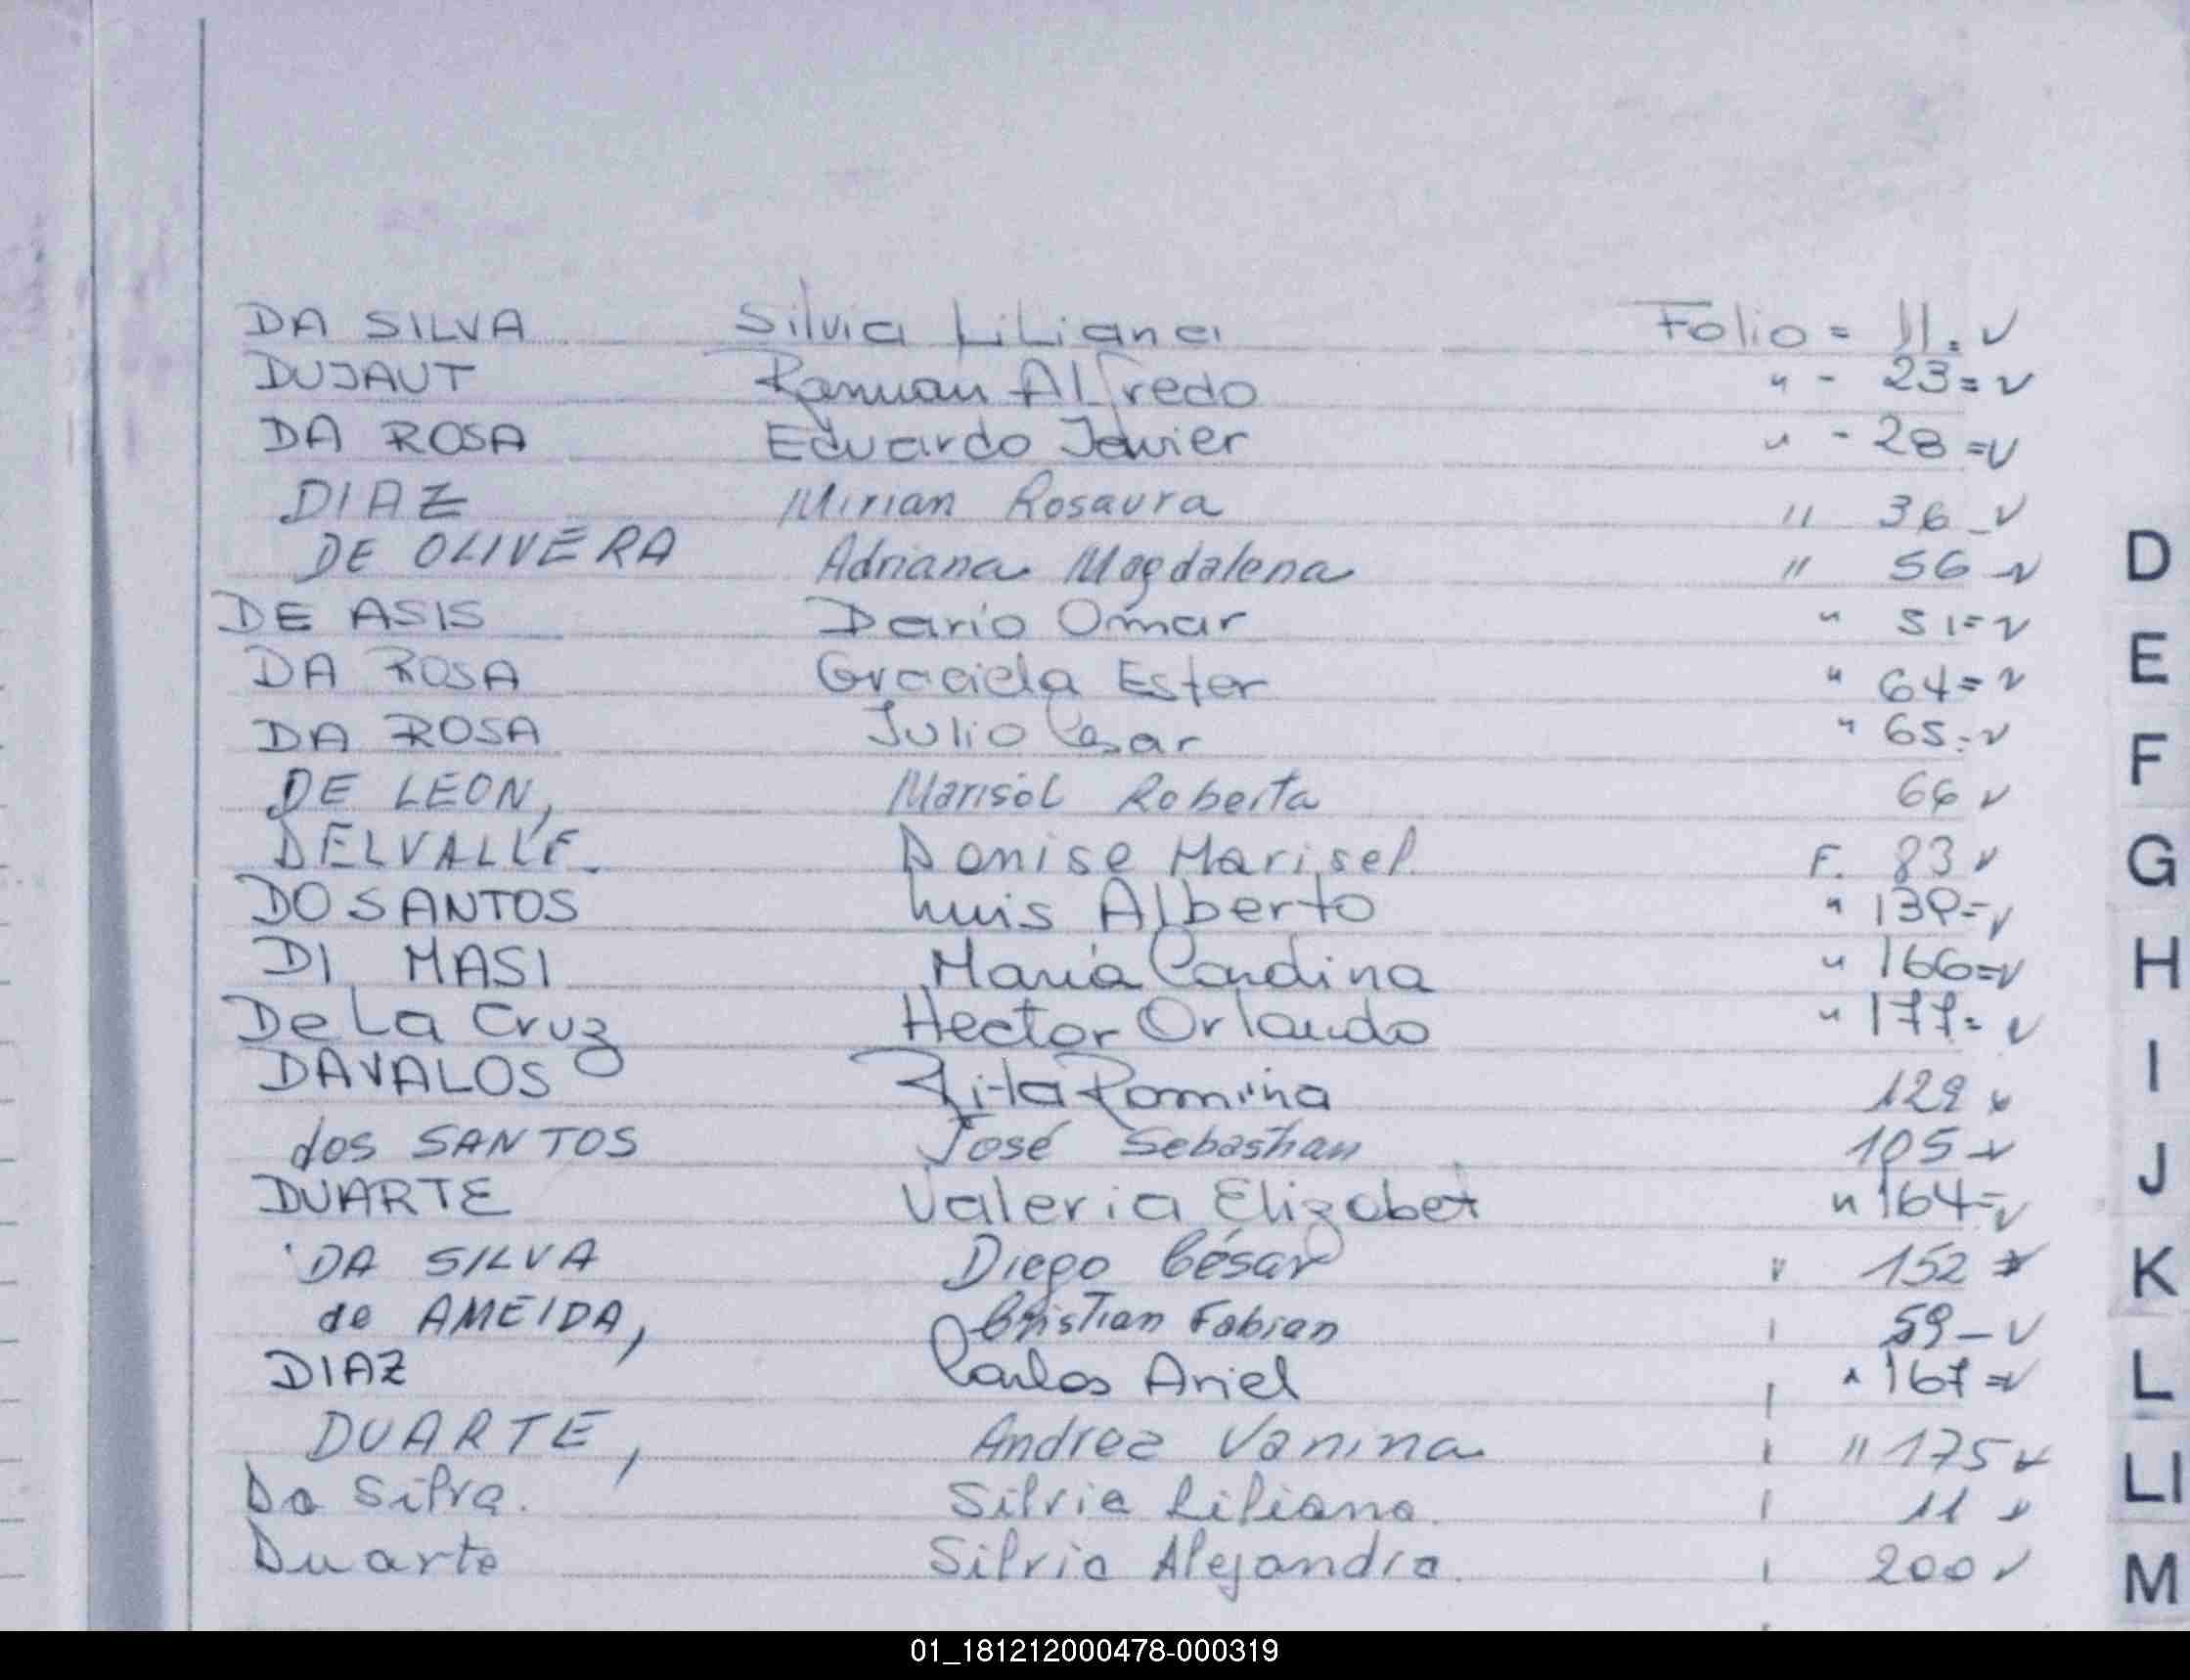 DA SILVA Silvia Liliana Folio = 11. ✓
DUJAUT Ramuan Alfredo " - 23 = ✓
DA ROSA Eduardo Javier " - 28 = ✓
DIAZ Mirian Rosaura " 36 - ✓
DE OLIVERA Adriana Magdalena " 56 - ✓
DE ASIS Dario Omar " 51 = ✓
DA ROSA Graciela Ester " 64 = ✓
DA ROSA Julio Cesar " 65 = ✓
DE LEON, Marisol Roberta 66 ✓
DELVALLE. Denise Marisel. F. 83 ✓
DO SANTOS Luis Alberto " = ✓
DI MASI María " 166 = ✓
De La Cruz Hector Orlando " 177 = ✓
DAVALOS Rita Romina 129 ✓
dos SANTOS José Sebastian 105 ✓
DUARTE Valeria Elizabet " 164 = ✓
DA SILVA Diego César " 152 ✓
de AMEIDA, Christian Fabian 59 - ✓
DIAZ Carlos Ariel " 167 = ✓
DUARTE, Andrea Vanina " 175 ✓
Da Silva. Silvia Liliana. 11 ✓
Duarte Silvia Alejandra. 200 ✓
D
E
F
G
H
I
J
K
L
LI
M
01_181212000478-000319